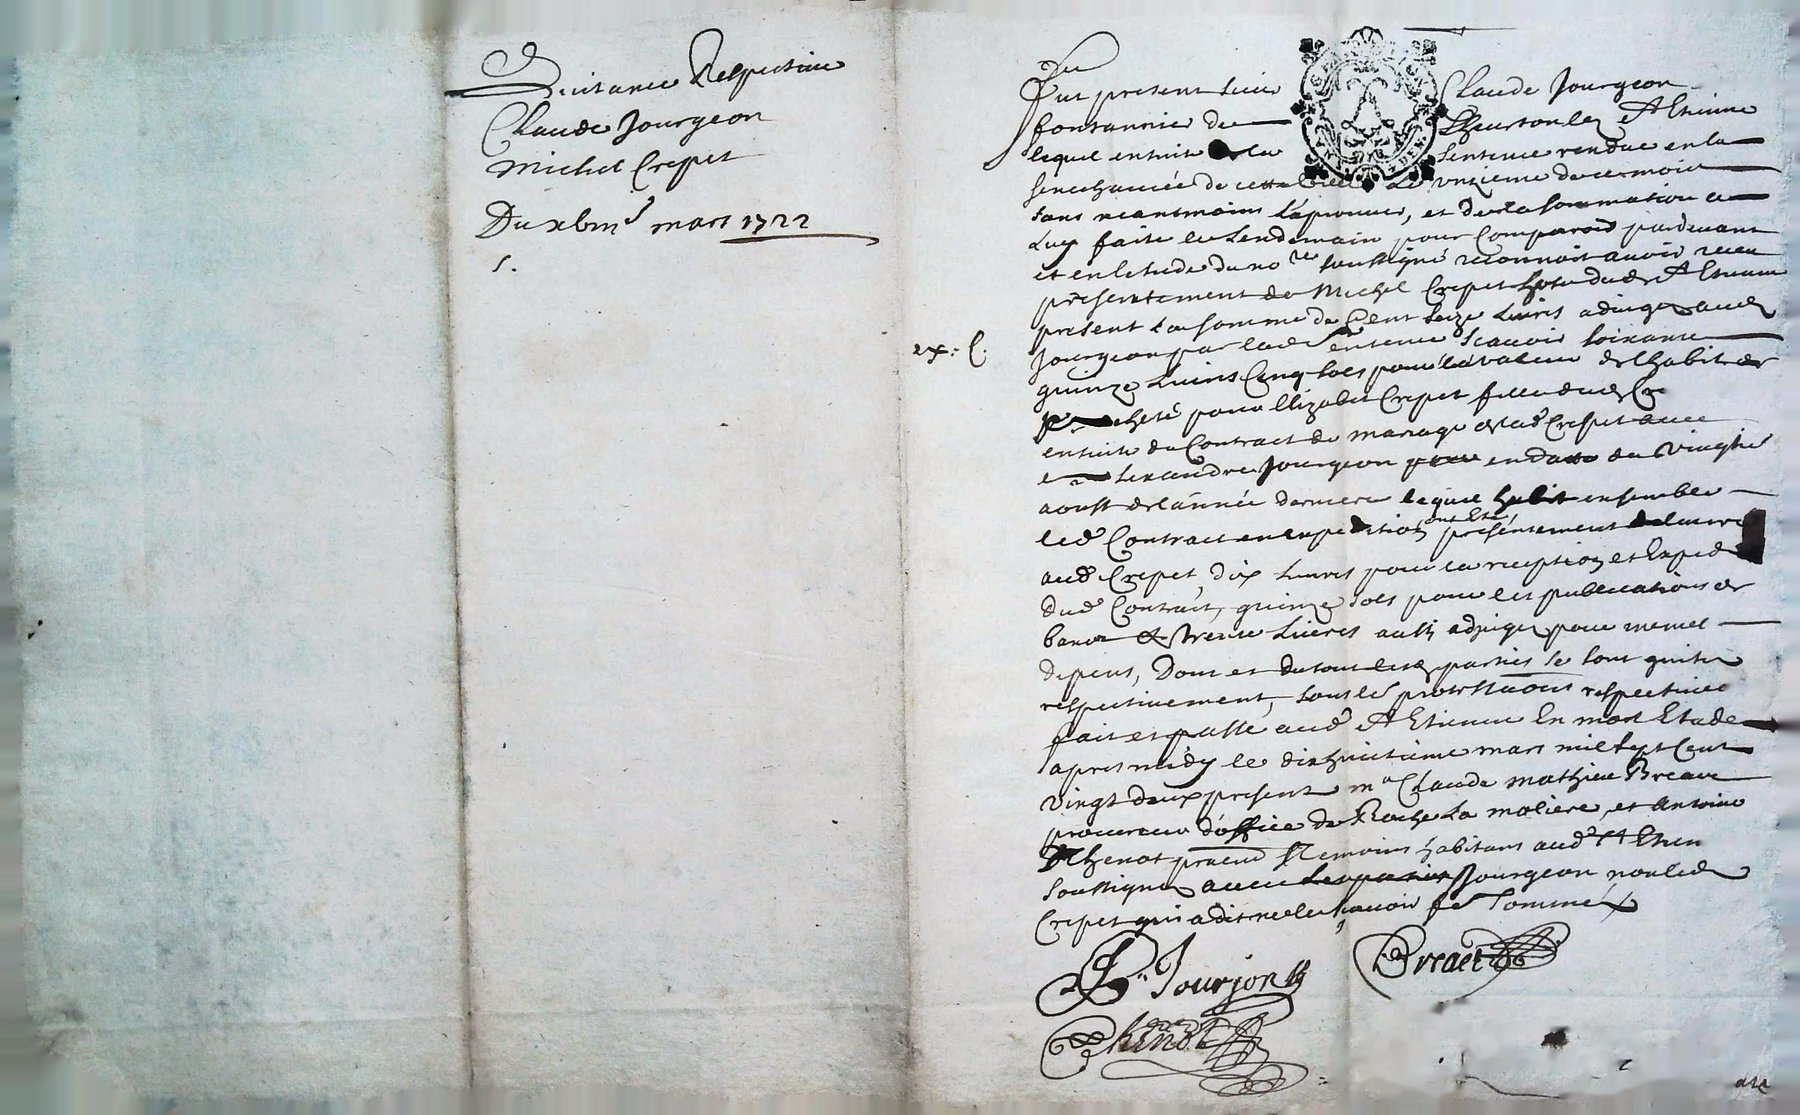 Quitance Respective
Claude Jourgeon
Michel Crepet
Du xbiii^e mars 1722
s.
Fut present sieur Claude Jourgeon
fontannier de St Etienne
lequel en suite de la sentence rendue en la
senechaucée de cette ville le unzieme de ce mois
sans neantmoins l'aprouver, et de la sommation a
luy faite le lendemain pour comparoir pardevant
et en letude du no^re soussigné reconnoit avoir receu
presentement de Michel Crepet hoste dud St Etienne
present la somme de Cent seize Livres adjugez aud
Jourgeon par lad sentence scavoir soixante
quinze Livres Cinq sols pour la valeur de lhabit
acheté pour Elizabet Crepet fille dud Cre
en suite du Contract de mariage de lad Crepet avec
Jourgeon en datte du vingt
aoust de lannée derniere lequel habit ensemble
led Contract en expedition ont Eté presentement
aud Crepet, dix Livres pour la reception et Exped
dud Contract, quinze sols pour les publications de
bancs et trente Livres aussi adjugez pour memes
depens, Dont et du tout lesd parties se sont quitté
respectivement, sous les protestations respectives
fait et passé aud St Etienne En mon Etude
apres midy le dixhuitieme mars mil sept Cent
vingt deux present m^e Claude mathieu Breaet
procureur d'office de Roche la moliere, et Antoine
Thenot praticien temoins habitans aud St Etien
soussignez avec Jourgeon non led
Crepet qui a dit ne le scavoir fe sommé
2x^e C.
Jourjon
Breaet
Thenot